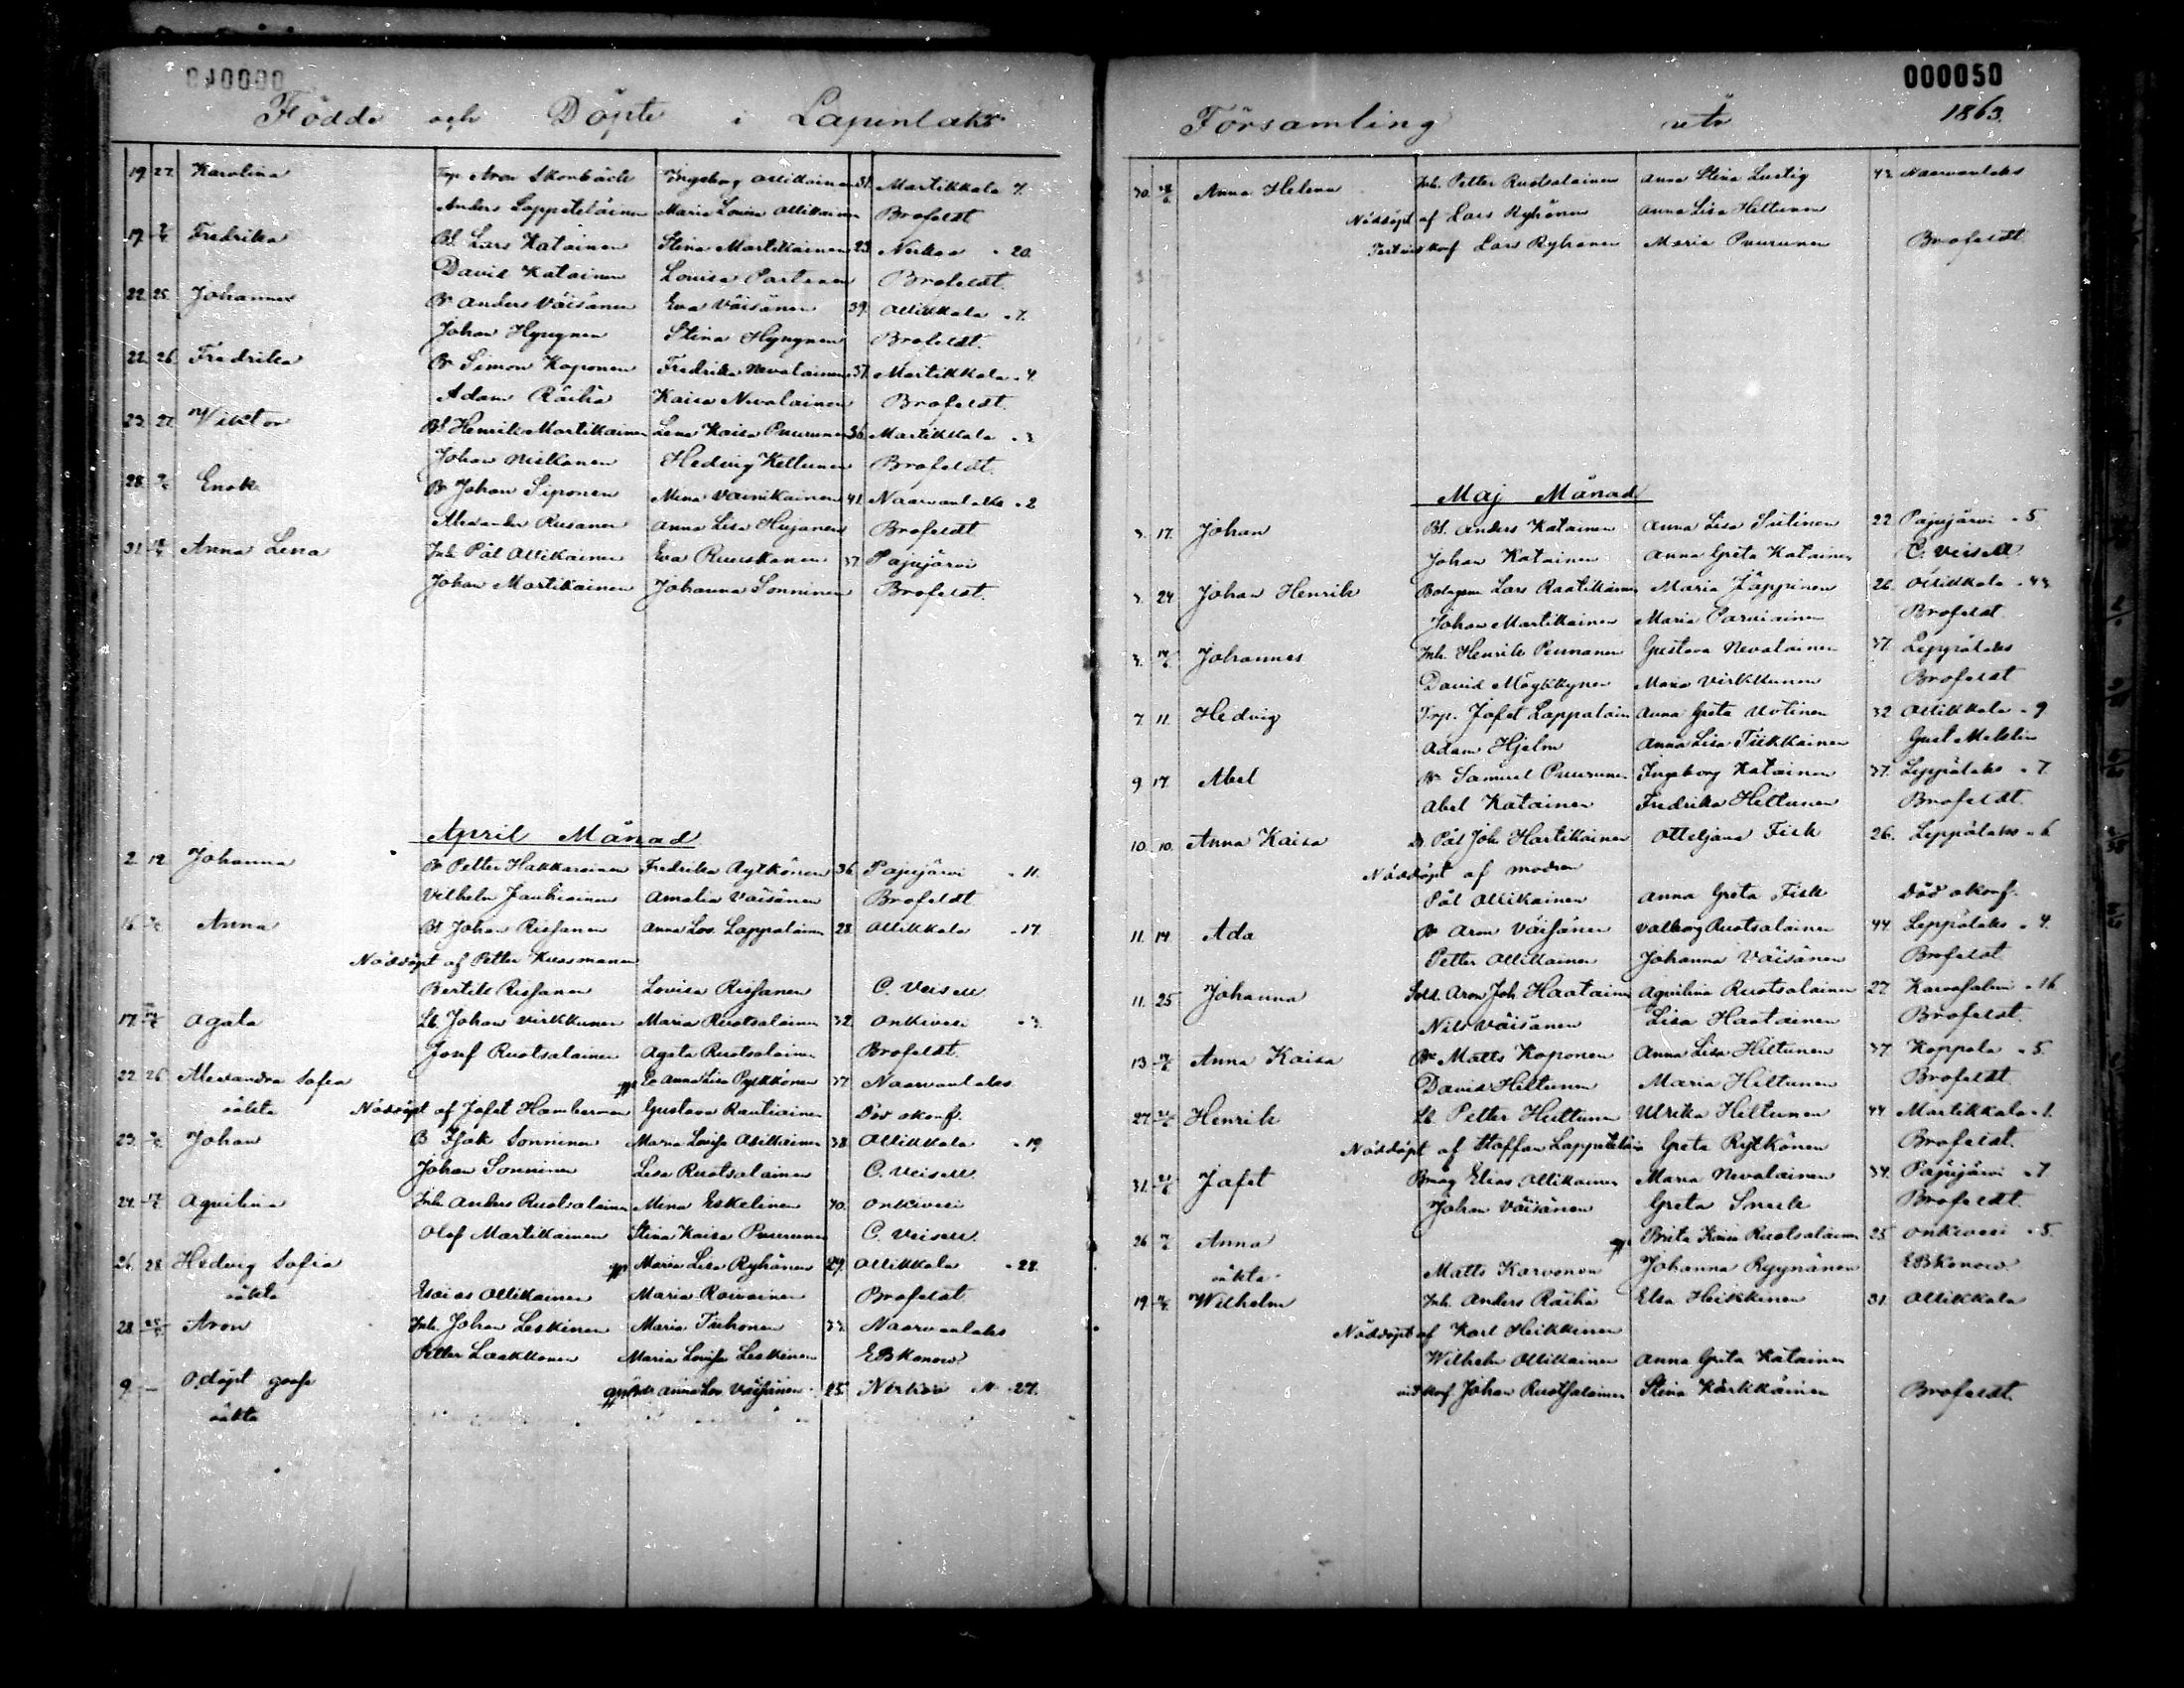 000050
Födde och Döpte i Lapinlaks
19. 27. Karolina Trp Aron Skonbäck Ingeborg Ollikainen 31. Martikkala 7.
Anders Lappeteläinen Maria Lovisa Ollikainen Brofeldt
19. Fredrika Bd Lars Katainen Stina Martikainen 23. Nerkoo 20.
David Katainen Lovisa Partanen Brofeldt.
22. 25. Johannes Br Anders Väisänen Eva Väisänen 39. Ollikkala 7.
Johan Hyngnen Stina Hyngnen Brofeldt.
22. 26. Fredrika Br Simon Koponen Fredrika Nevalainen 37. Martikkala 4.
Adam Räihä Kaisa Nevalainen Brofeldt.
23. 27. Viktor Bd Henrik Martikainen Lena Kaisa Puurunen 36. Martikkala 3
Johan Miskanen Hedvig Kettunen Brofeldt.
28. Enok Br Johan Siponen Mina Väinikainen 41. Naarvanlaks 2
Alexander Rusanen Anna Lisa Hujanen Brofeldt
31. Anna Lena Inh. Pål Ollikainen Eva Ruuskanen 37 Pajujärvi
Johan Martikainen Johanna Sonninen Brofeldt.
April Månad
2. 12. Johanna Br Petter Hakkarainen Fredrika Rytkönen 36. Pajujärvi 11.
Vilhelm Jauhiainen Amalia Väisänen Brofeldt
16. Anna Bd Johan Rissanen Anna Lov. Lappalainen 28. Ollikkala 17.
Nöddöpt af Petter Kuosmanen
Bertil Rissanen Lovisa Rissanen C. Veisell
17. Agata Lb. Johan Virkkunen Maria Ruotsalainen 32. Onkivesi 3.
Josef Ruotsalainen Agata Ruotsalainen Brofeldt.
22. 26. Alexandra Sofia Anna Lisa Pyykkönen 37 Naarvanlaks
oäkta Nöddöpt af Jafet Hamberman Gustava Rautiainen Död okonf.
23. Johan B Isak Sonninen Maria Lovisa Ollikainen 38. Ollikkala 19
Johan Sonninen Lisa Ruotsalainen C. Veisell.
24. Aqvilina Inh. Anders Ruotsalainen Mina Eskelinen 40. Onkivesi
Olof Martikainen Stina Kaisa Puurunen C. Veisell.
26. 28. Hedvig Sofia Maria Lisa Ryhänen 29. Ollikkala 22.
oäkta Esaias Ollikainen Maria Roivainen Brofeldt
28. Aron Inh. Johan Leskinen Maria Tiihonen 33. Naarvanlaks
Petter Laakkonen Maria Lovisa Leskinen E B Konow
9. — Odöpt gosse Anna Lov Väisänen 25. Nerkoo N 27.
oäkta
Församling år 1863.
30. Anna Helena Inh. Petter Ruotsalainen Anna Stina Lustig 43. Naarvanlaks
Nöddöpt af Lars Ryhänen Anna Lisa Hiltunen
Lars Ryhänen Maria Puurunen Brofeldt
Maj Månad
3. 17. Johan Bd. Anders Katainen Anna Lisa Sutinen 22 Pajujärvi 5.
Johan Katainen Anna Greta Katainen C. Veisell
3. 24 Johan Henrik Bolagsm Lars Raatikainen Maria Jäppinen 26. Ollikkala 43
Johan Martikainen Maria Parviainen Brofeldt.
3. Johannes Inh. Henrik Pennanen Gustava Nevalainen 37. Leppälaks
David Möykkynen Maria Virkkunen Brofeldt
7. 11. Hedvig Trp. Jafet Lappalain Anna Greta Uotinen 32 Ollikkala 9.
Adam Hjelm Anna Lisa Tikkainen Gust Melstin
9 17. Abel Br Samuel Puurunen Ingeborg Katainen 37. Leppälaks 7.
Abel Katainen Fredrika Hiltunen Brofeldt.
10. 10. Anna Kaisa Dr. Pål Joh. Hartikainen Otteljana Fisk 26. Leppälaks 6
Nöddöpt af modren
Pål Ollikainen Anna Greta Fisk Död okonf.
11. 14. Ada Br Aron Väisänen Valborg Ruotsalainen 44. Leppälaks 4.
Petter Ollikainen Johanna Väisänen Brofeldt
11. 25 Johanna Sold. Aron Joh. Haataine Aqvilina Ruotsalainen 27. 16
Nils Väisänen Lisa Haatainen Brofeldt.
13. Anna Kaisa Br Matts Koponen Anna Lisa Hiltunen 37. Koppola 5.
David Hiltunen Maria Hiltunen Brofeldt
27. Henrik Lb. Petter Huttunen Ulrika Hiltunen 44 Martikkala 1.
Nöddöpt af Staffan Lappeteläin Greta Rytkönen Brofeldt.
31. Jafet Elias Ollikainen Maria Nevalainen 34. Pajujärvi 7
Johan Väisänen Greta Smuik Brofeldt
26 Anna Brita Kaisa Ruotsalainen 25 Onkivesi 5.
oäkta Matts Karvonen Johanna Ryynänen E B Konow.
19. Wilhelm Inh. Anders Räihä Elsa Heikkinen 31. Ollikkala
Nöddöpt af Karl Heikkinen
Wilhelm Ollikainen Anna Greta Katainen
vid konf Johan Ruotsalainen Stina Kärkkäinen Brofeldt.